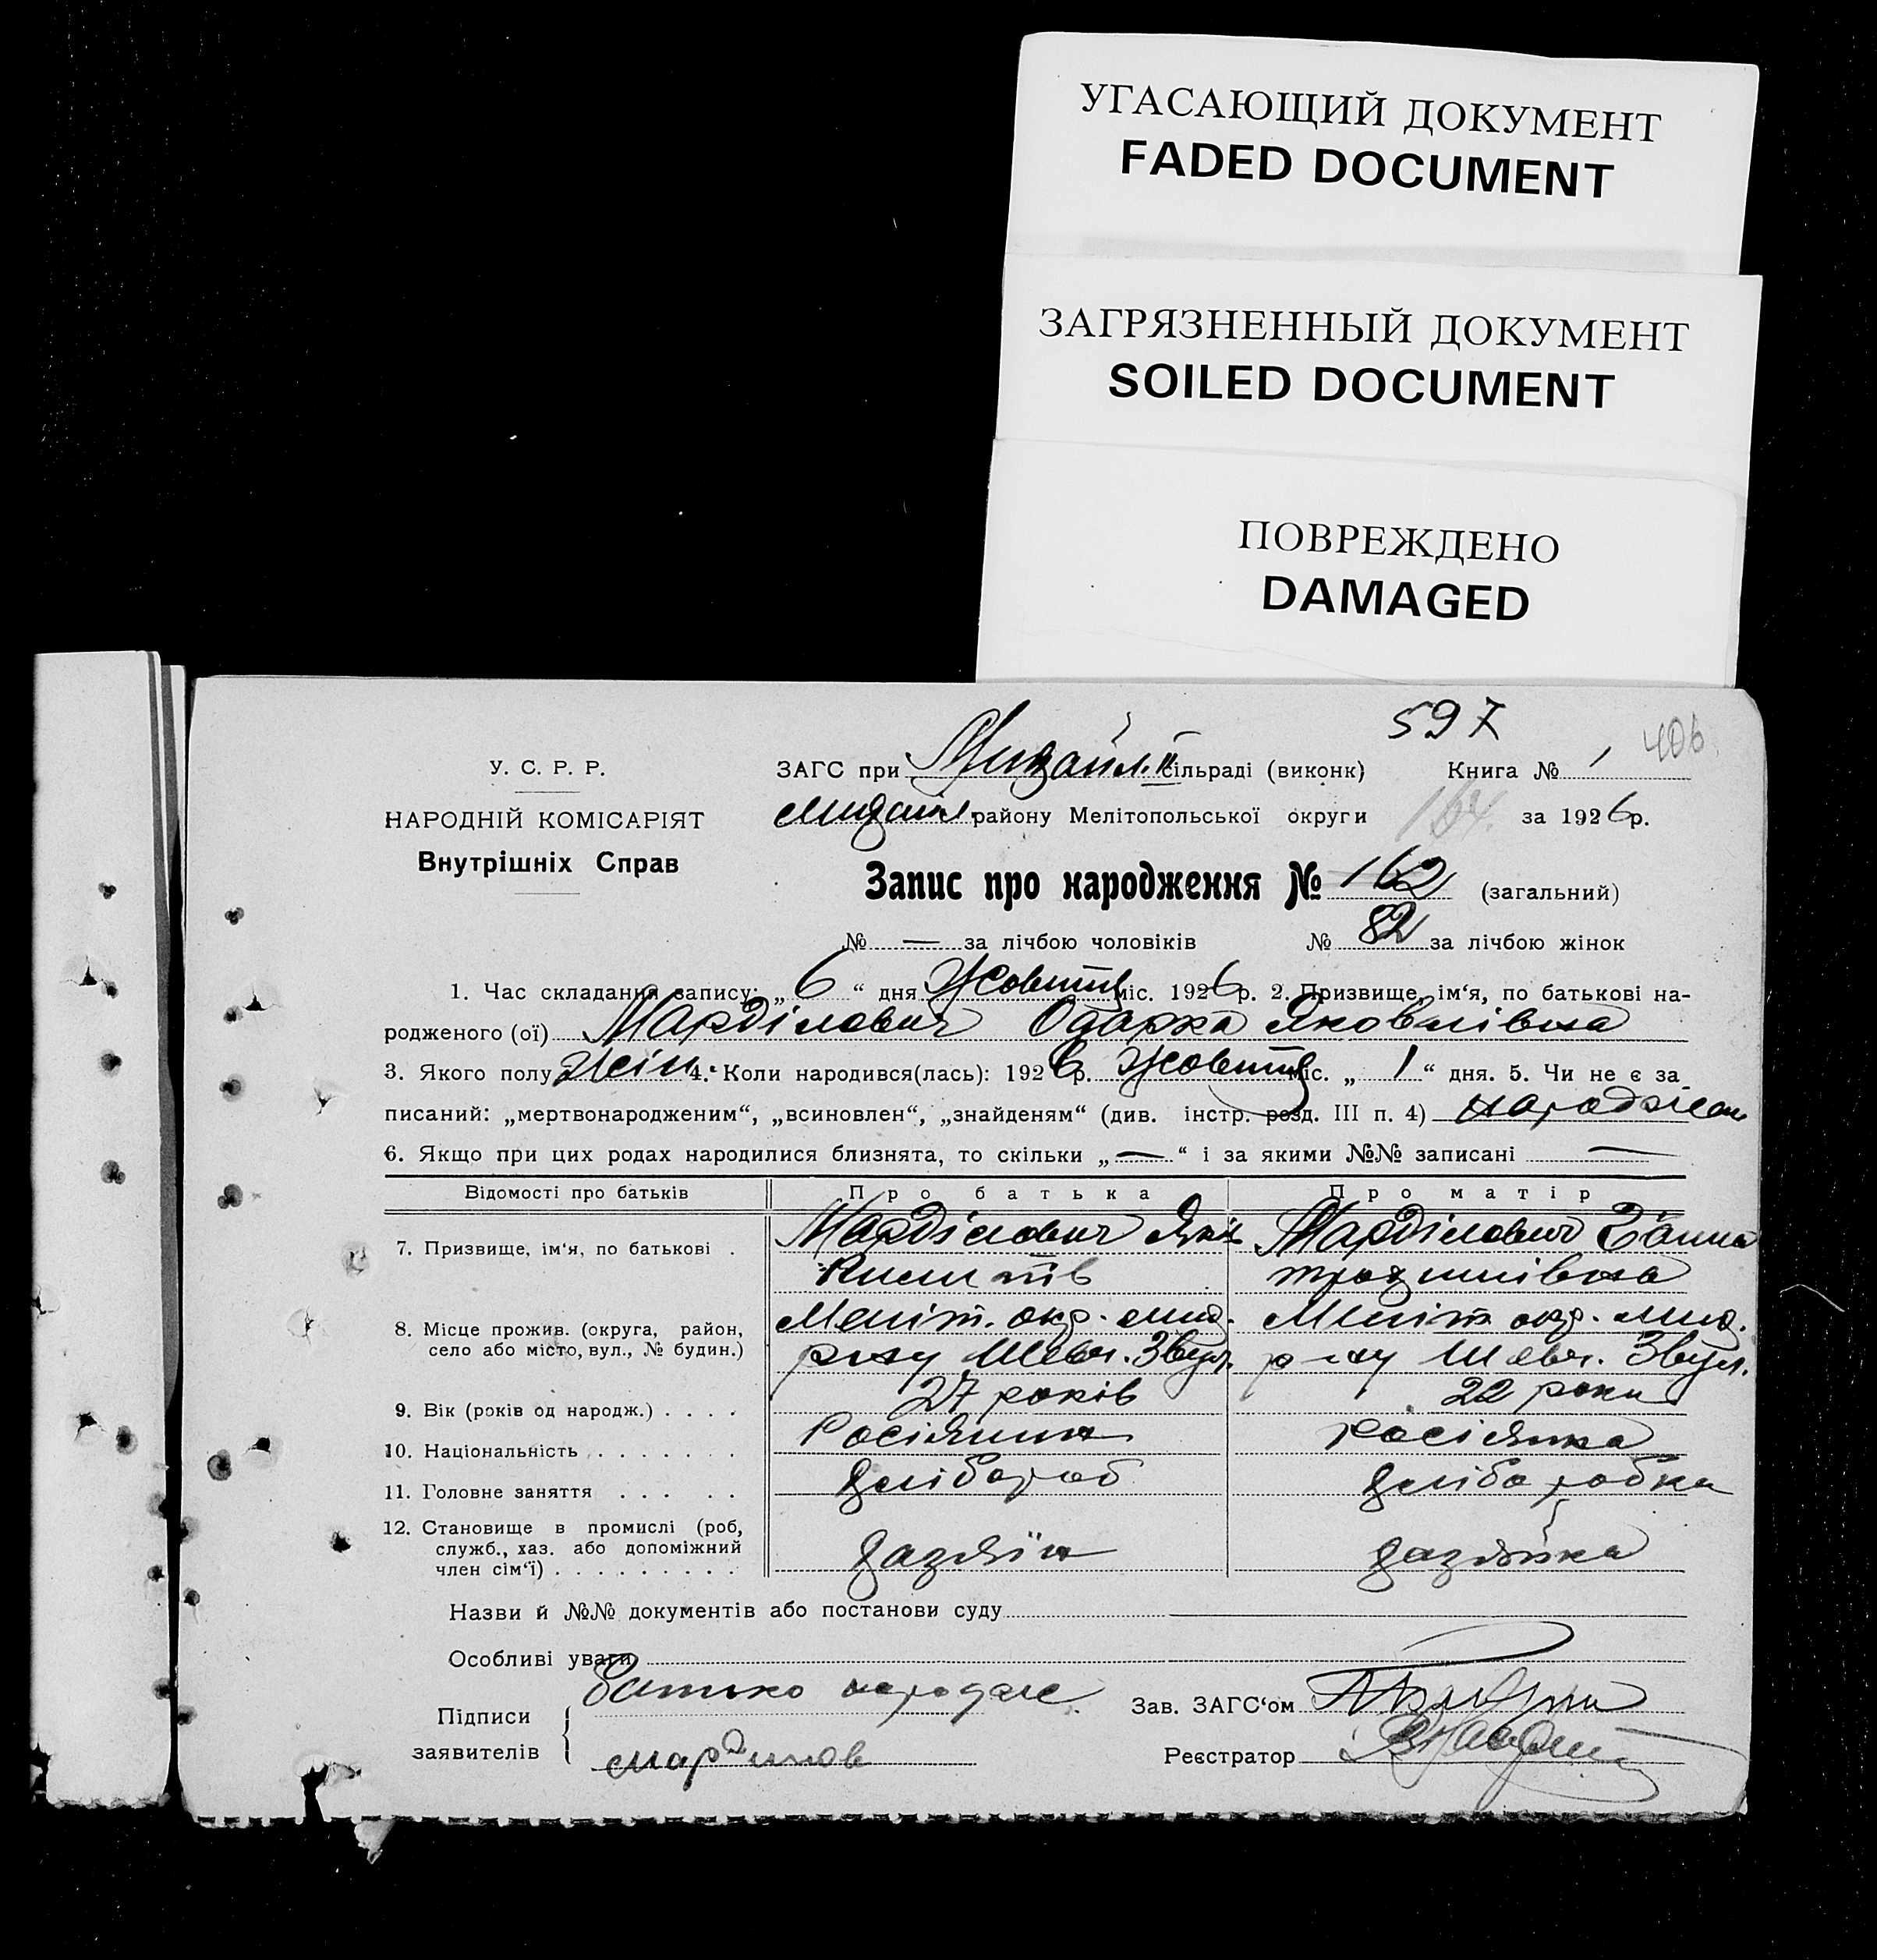 УГАСАЮЩИЙ ДОКУМЕНТ
FADED DOCUMENT
ЗАГРЯЗНЕННЫЙ ДОКУМЕНТ
SOILED DOCUMENT
ПОВРЕЖДЕНО
DAMAGED
597
406
У. С. Р. Р.
НАРОДНІЙ КОМІСАРІЯТ
Внутрішніх Справ
ЗАГС при Михайл. II сільраді (виконк) Книга № 1
Михайл. району Мелітопольської округи 164. за 1926 р.
Запис про народження № 162 (загальний)
№ — за лічбою чоловіків № 82 за лічбою жінок
1. Час складання запису: „ 6 “ дня Жовтня міс. 1926 р. 2. Призвище, ім‘я, по батькові на-
родженого (ої) Марділович Одарка Яковлівна
3. Якого полу Жін. 4. Коли народився(лась): 1926 р. Жовтня міс. „ 1 “ дня. 5. Чи не є за-
писаний: „мертвонародженим“, „всиновлен“, „знайденям“ (див. інстр. розд. III п. 4) народжен
6. Якщо при цих родах народилися близнята, то скільки „ — “ і за якими №№ записані —
Відомості про батьків Про батька Про матір
7. Призвище, ім‘я, по батькові . Марділович Яків Марділович Ганна
8. Місце прожив. (округа, район, село або місто, вул., № будин.) Меліт. окр. мих. Меліт. окр. мих.
р-ну Шевч. 3 вул. р-ну Шевч. 3 вул.
9. Вік (років од народж.) . . . . 27 років 22 роки
10. Національність . . . . . . . Росіянин Росіянка
11. Головне заняття . . . . . хлібороб хліборобка
12. Становище в промислі (роб, служб., хаз. або допоміжний член сім‘ї) . . . . . . . . . хазяїн хазяйка
Назви й №№ документів або постанови суду
Особливі уваги
Підписи заявителів Батько
Зав. ЗАГС‘ом
Реєстратор